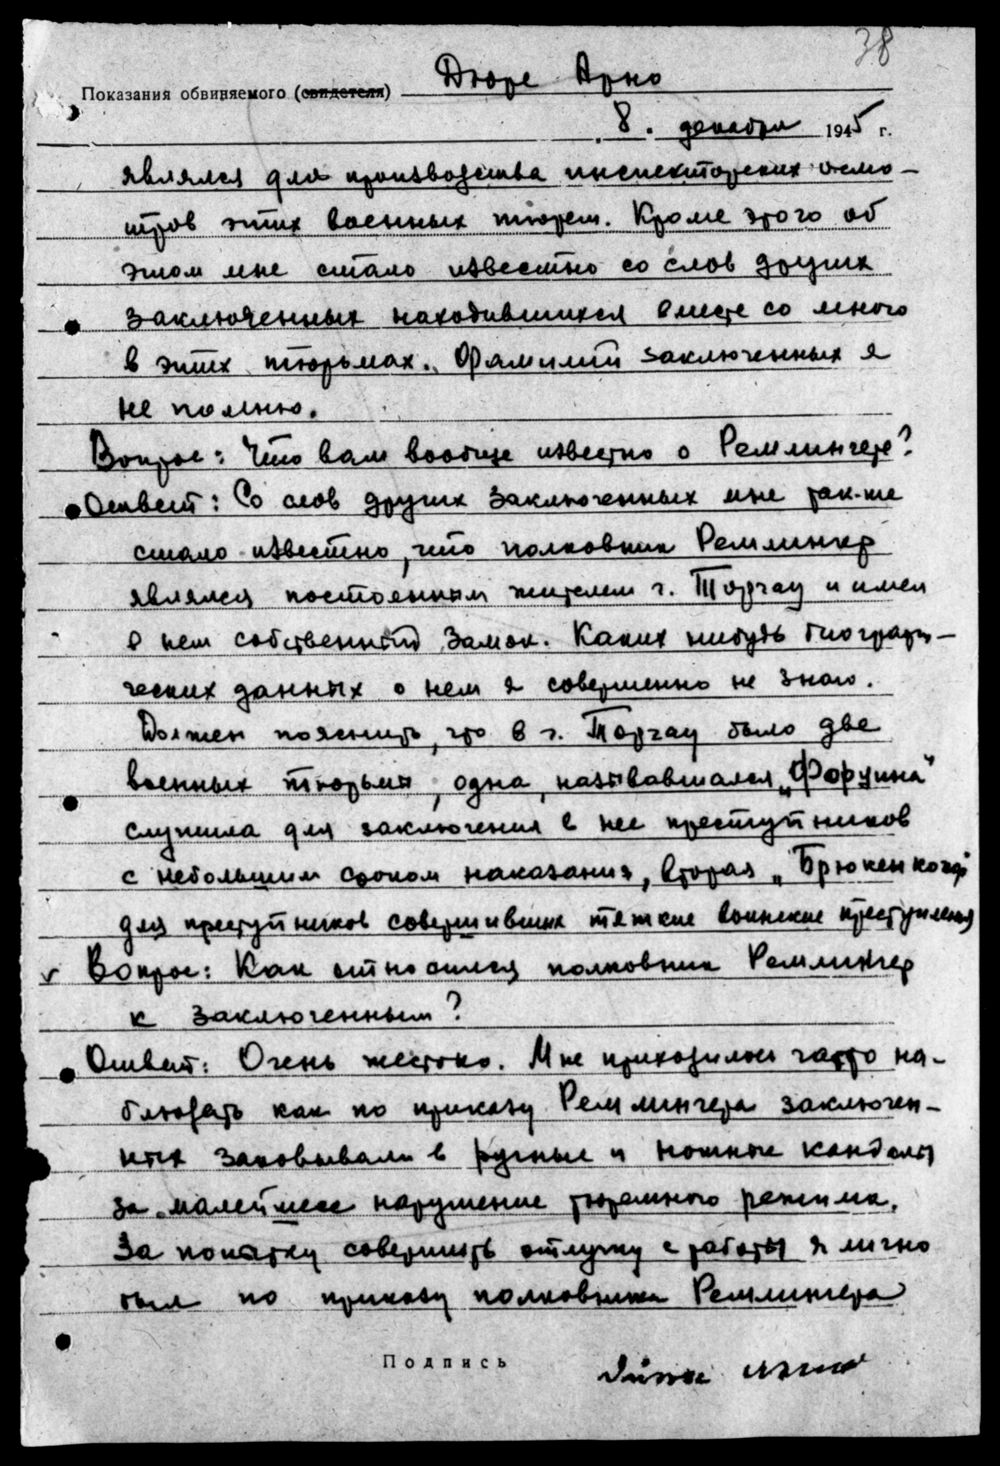 38
Показания обвиняемого (свидетеля) Дюре Арно
8. декабря 1945 г.
являлся для производства инспекторских осмо-
тров этих военных тюрем. Кроме этого об
этом мне стало известно со слов других
заключенных находившихся вместе со мною
в этих тюрьмах. Фамилий заключенных я
не помню.
Вопрос: Что вам вообще известно о Ремлингере?
Ответ: Со слов других заключенных мне так-же
стало известно, что полковник Ремлингер
являлся постоянным жителем г. Торгау и имел
в нем собственный замок. Каких нибудь биографи-
ческих данных о нем я совершенно не знаю.
Должен пояснить, что в г. Торгау было две
военных тюрьмы, одна, называвшаяся „Форцина"
служила для заключения в нее преступников
с небольшим сроком наказания, вторая „Брюкенкопф"
для преступников совершивших тяжкие воинские преступления
Вопрос: Как относился полковник Ремлингер
к заключенным?
Ответ: Очень жестоко. Мне приходилось часто на-
блюдать как по приказу Ремлингера заключен-
ных заковывали в ручные и ножные кандалы
за малейшее нарушение тюремного режима.
За попытку совершить отлучку с работы я лично
был по приказу полковника Ремлингера
Подпись